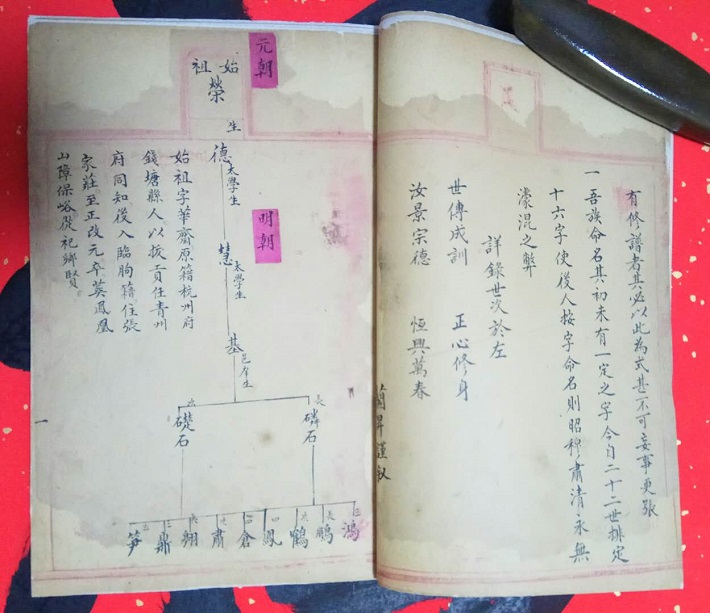 有修譜者其必以此為式甚不可妄事更張
一吾族命名其初未有一定之字今自二十二世排定
十六字使後人按字命名則昭穆肅清永無
濛混之弊
詳錄世次於左
世傳成訓 正心修身
汝景宗德 恒興萬春
謹叙
元朝
始祖
榮
生
德 太學生
明朝
慧 太學生
基 邑庠生
長 磷石
次 礎石
三 鴻
長 鵬
次 鶴
四 鳳
四 倉
次 肅
次 翱
三 鼎
三 笋
始祖字華齋原籍杭州府
錢塘縣人以拔貢任青州
府同知後入臨朐籍住張
家莊至正改元卒葬鳳凰
山障保峪從祀鄉賢
一